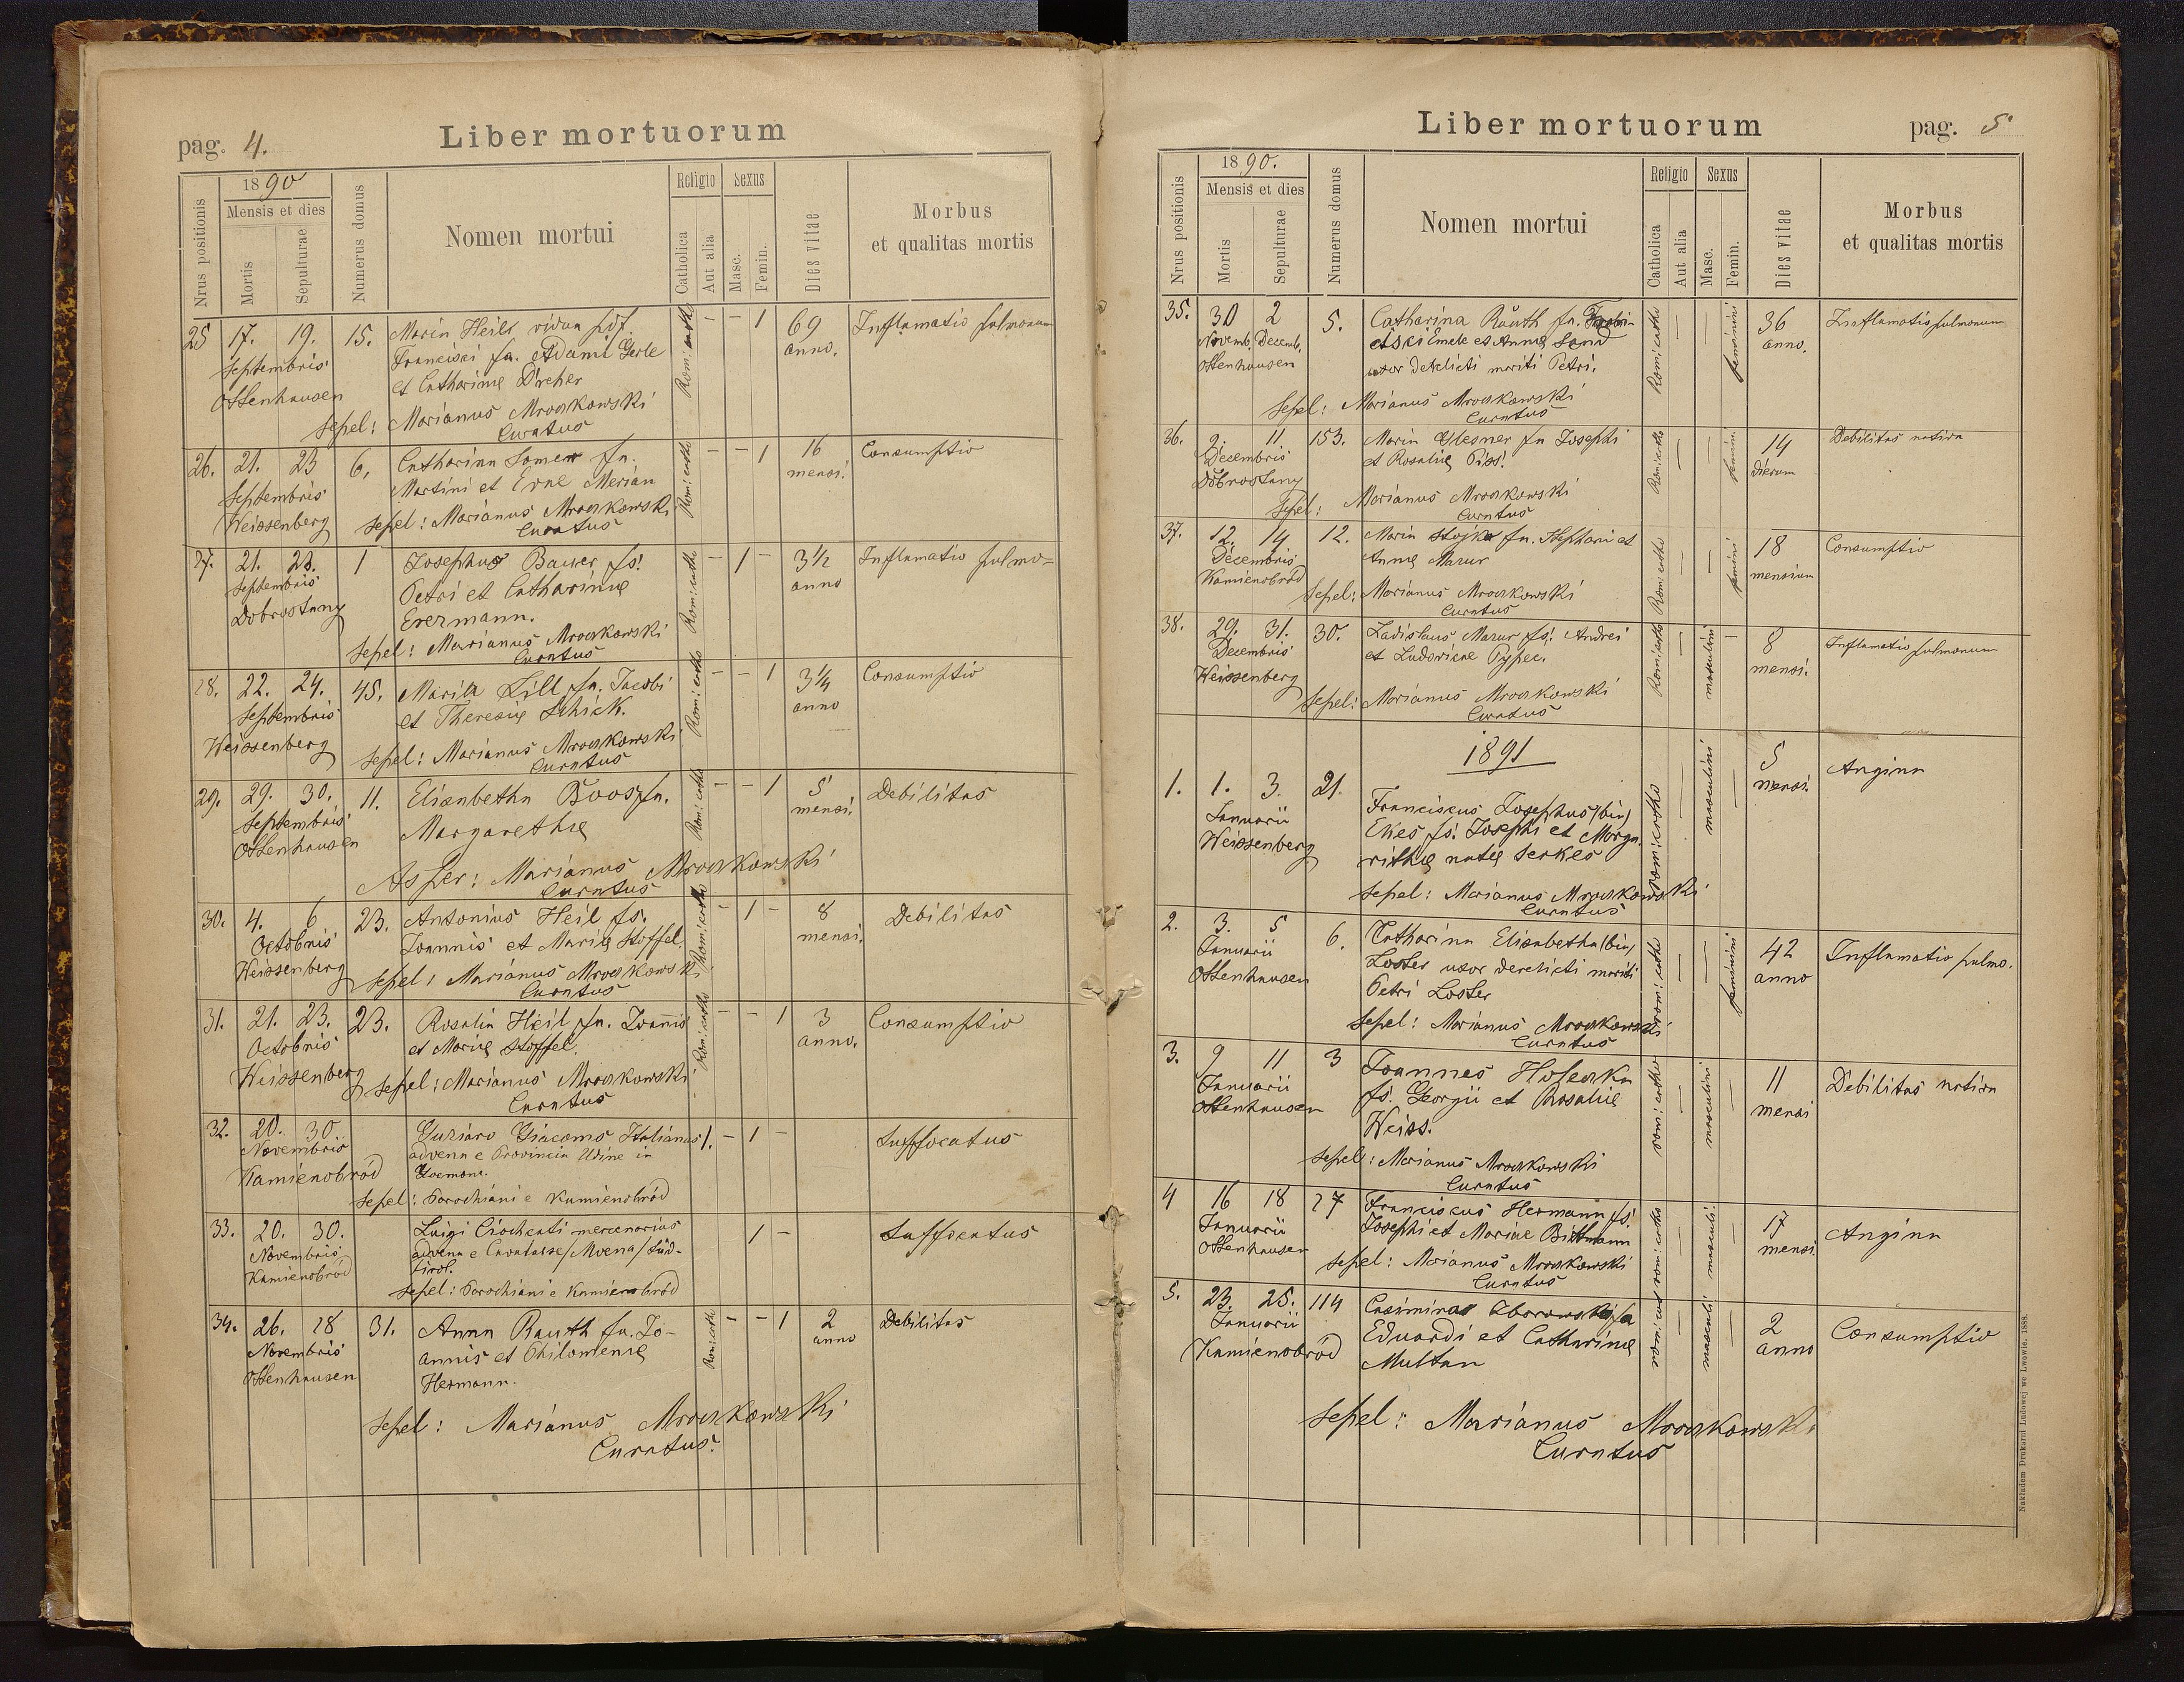 pag. 4.
Liber mortuorum
Nrus positionis
1890
Mensis et dies
Mortis
Sepulturae
Numerus domus
Nomen mortui
Religio
Catholica
Aut alia
Sexus
Masc.
Femin.
Dies vitae
Morbus
et qualitas mortis
25 17. 19. 15. Maria Heils vidua
Septembris Francisci fa. Adami Gerle
Ottenhausen et Catharinae Dreher
Sepel: Marianus Mroczkowski
Curatus
Rom: catho - - 1 69 anno. Inflamatio pulmonum
26. 21. 23 6. Catharina Somer fa.
Septembris Martini et Evae Merian
Weissenberg Sepel: Marianus Mroczkowski
Curatus
Rom: catho - - 1 16 mensi. Consumptio
27. 21. 23. 1 Josephus Bauer fs:
Septembris Petri et Catharinae
Dobrostany Erermann.
Sepel: Marianus Mroczkowski
Curatus
Rom: catho - 1 - 3½ anno Inflamatio pulmo-
28. 22. 24. 45. Maria Lill fa. Jacobi
Septembris et Theresiae Schick.
Weissenberg Sepel: Marianus Mroczkowski
Curatus
Rom: catho - - 1 3¼ anno Consumptio
29. 29. 30. 11. Elisabetha Boos fa.
Septembris Margarethae
Ottenhausen
Asper: Marianus Mroczkowski
Curatus
Rom: catho - - 1 5 mensi. Debilitas
30. 4. 6 23. Antonius Heil fs.
Octobris Joannis et Mariae Stoffel.
Weissenberg Sepel: Marianus Mroczkowski
Curatus
Rom: catho - 1 - 8 mensi. Debilitas
31. 21. 23. 23. Rosalia Heil fa. Joannis
Octobris et Mariae Stoffel.
Weissenberg Sepel: Marianus Mroczkowski
Curatus
Rom: catho - - 1 3 anno. Consumptio
32. 20. 30. Guriaro Giacomo Italianus
Novembris advena e Provincia Udine in
Kamienobród Gemona.
Sepel: Parochiani e Kamienobród
1. - 1 - Suffocatus
33. 20. 30. Luigi mercenarius
Novembris advena e Cavalasse/Moena/Süd-
Kamienobród tirol.
Sepel: Parochiani e Kamienobród
1 - Suffocatus
34. 26. 28 31. Anna Rauth fa. Jo-
Novembris annis et Philomenae
Ottenhausen Hermann.
Sepel: Marianus Mroczkowski
Curatus.
Rom: cath - - 1 2 anno Debilitas
Liber mortuorum
pag. 5
Nrus positionis
1890.
Mensis et dies
Mortis
Sepulturae
Numerus domus
Nomen mortui
Religio
Catholica
Aut alia
Sexus
Masc.
Femin.
Dies vitae
Morbus
et qualitas mortis
35. 30 2 5. Catharina Rauth fa.
Novemb. Decemb. et Anna Sand
Ottenhausen uxor derelicti mariti Petri.
Sepel: Marianus Mroczkowski
Curatus
Rom: catho feminini 36 anno. Inflamatio pulmonum
36. 9. 11. 153. Maria Glesner fa Josephi
Decembris et Rosaliae Piss.
Dobrostany
Sepel: Marianus Mroczkowski
Curatus
Rom: catho — — femin. 14 dierum Debilitas nativa
37. 12. 14 12. Maria Stojka fa. Stephani et
Decembris Annae Mazur
Kamienobród
Sepel: Marianus Mroczkowski
Curatus
Rom: catho — — feminini 18 mensium Consumptio
38. 29. 31. 30. Ladislaus Mazur fs: Andrei
Decembris et Ludovicae Pypec.
Weissenberg
Sepel: Marianus Mroczkowski
Curatus
Rom: catho — masculini — 8 mensi. Inflamatio pulmonum
1891
1. 1. 3. 21. Franciscus Josephus (bin)
Januarii Elies fs: Josephi et Marga-
Weissenberg rithae natae Serkes
Sepel: Marianus Mroczkowski
Curatus
rom: catho — masculini — 5 mensi. Angina
2. 3. 5 6. Catharina Elisabetha (bin)
Januarii Loster uxor derelicti mariti
Ottenhausen Petri Loster
Sepel: Marianus Mroczkowski
Curatus
rom: catho — — feminini 42 anno Inflamatio pulmo.
3. 9 11 3 Joannes Holeczka
Januarii fs. Georgii et Rosaliae
Ottenhausen Weiss.
Sepel: Marianus Mroczkowski
Curatus
rom: catho — masculini — 11 mensi Debilitas nativa
4 16 18 27 Franciscus Hermann fs:
Januarii Josephi et Mariae Bittmann
Ottenhausen
Sepel: Marianus Mroczkowski
Curatus
rom: catho — masculi. — 17 mensi Angina
5. 23. 25. 114 Casimira
Januarii Eduardi et Catharinae
Kamienobród Multan
Sepel: Marianus Mroczkowski
Curatus
rom: cat — masculi — 2 anno Consumptio
Nakładem Drukarni Ludowej we Lwowie. 1888.